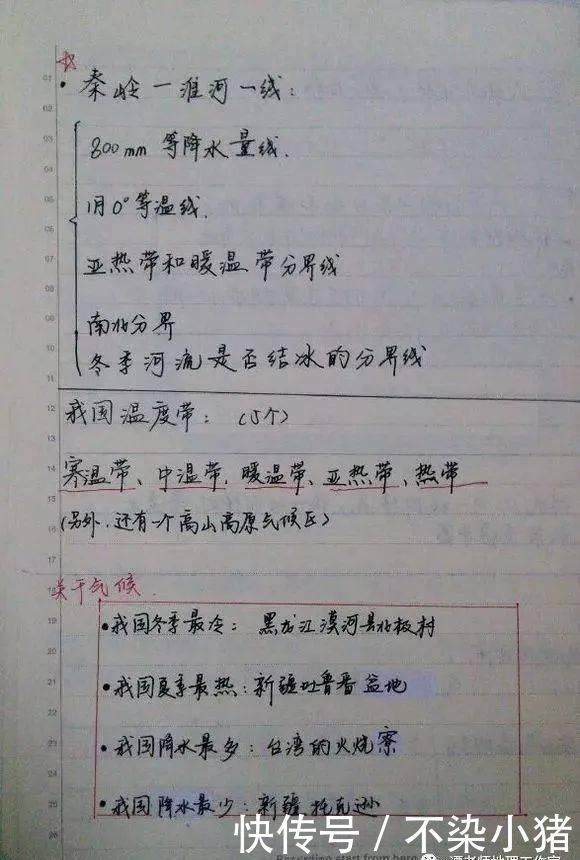 秦岭一淮河一线:
800mm 等降水量线.
1月0°等温线.
亚热带和暖温带分界线
南北分界
冬季河流是否结冰的分界线
我国温度带: (5个)
寒温带、中温带、暖温带、亚热带、热带
(另外,还有一个高山高原气候区)
关于气候.
•我国冬季最冷: 黑龙江漠河县北极村
•我国夏季最热:新疆吐鲁番盆地
•我国降水最多:台湾的火烧寮
•我国降水最少:新疆托克逊
快传号 / 不染小猪